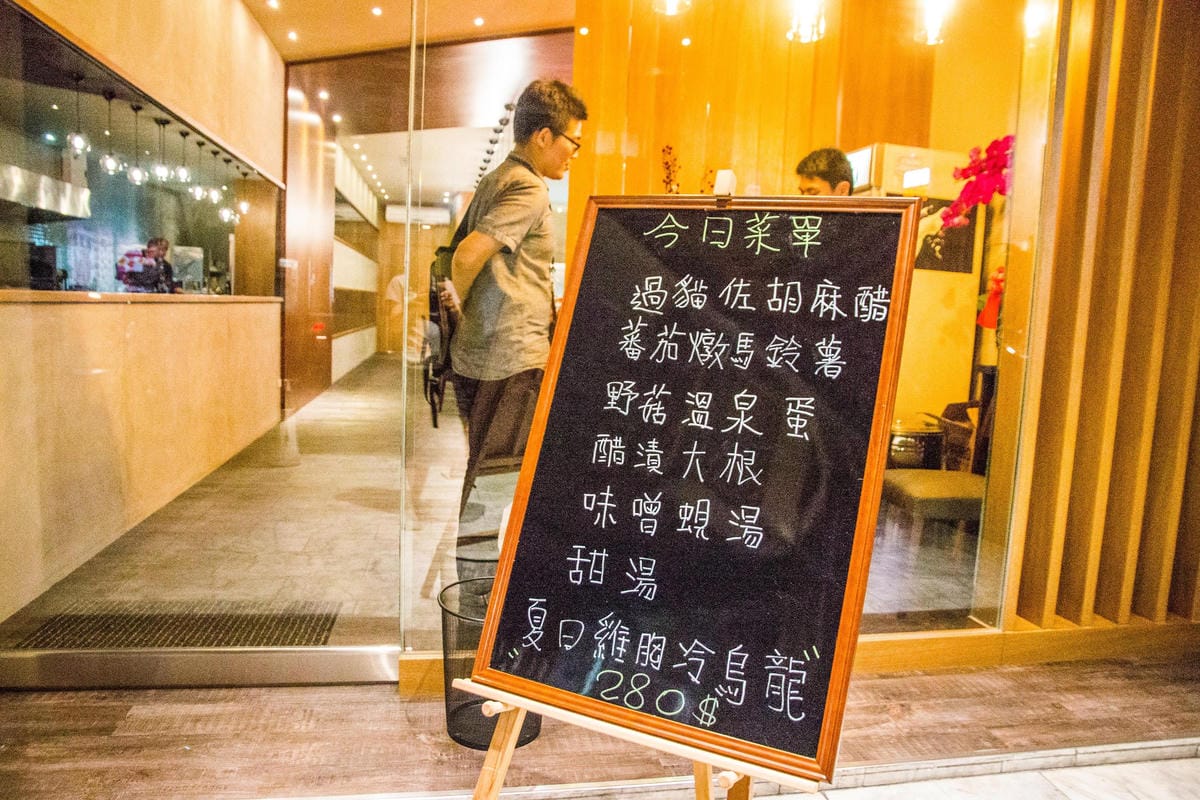 今日菜單
過貓佐胡麻醋
蕃茄燉馬鈴薯
野菇溫泉蛋
醋漬大根
味噌蜆湯
甜湯
"夏日雞胸冷烏龍"
280$